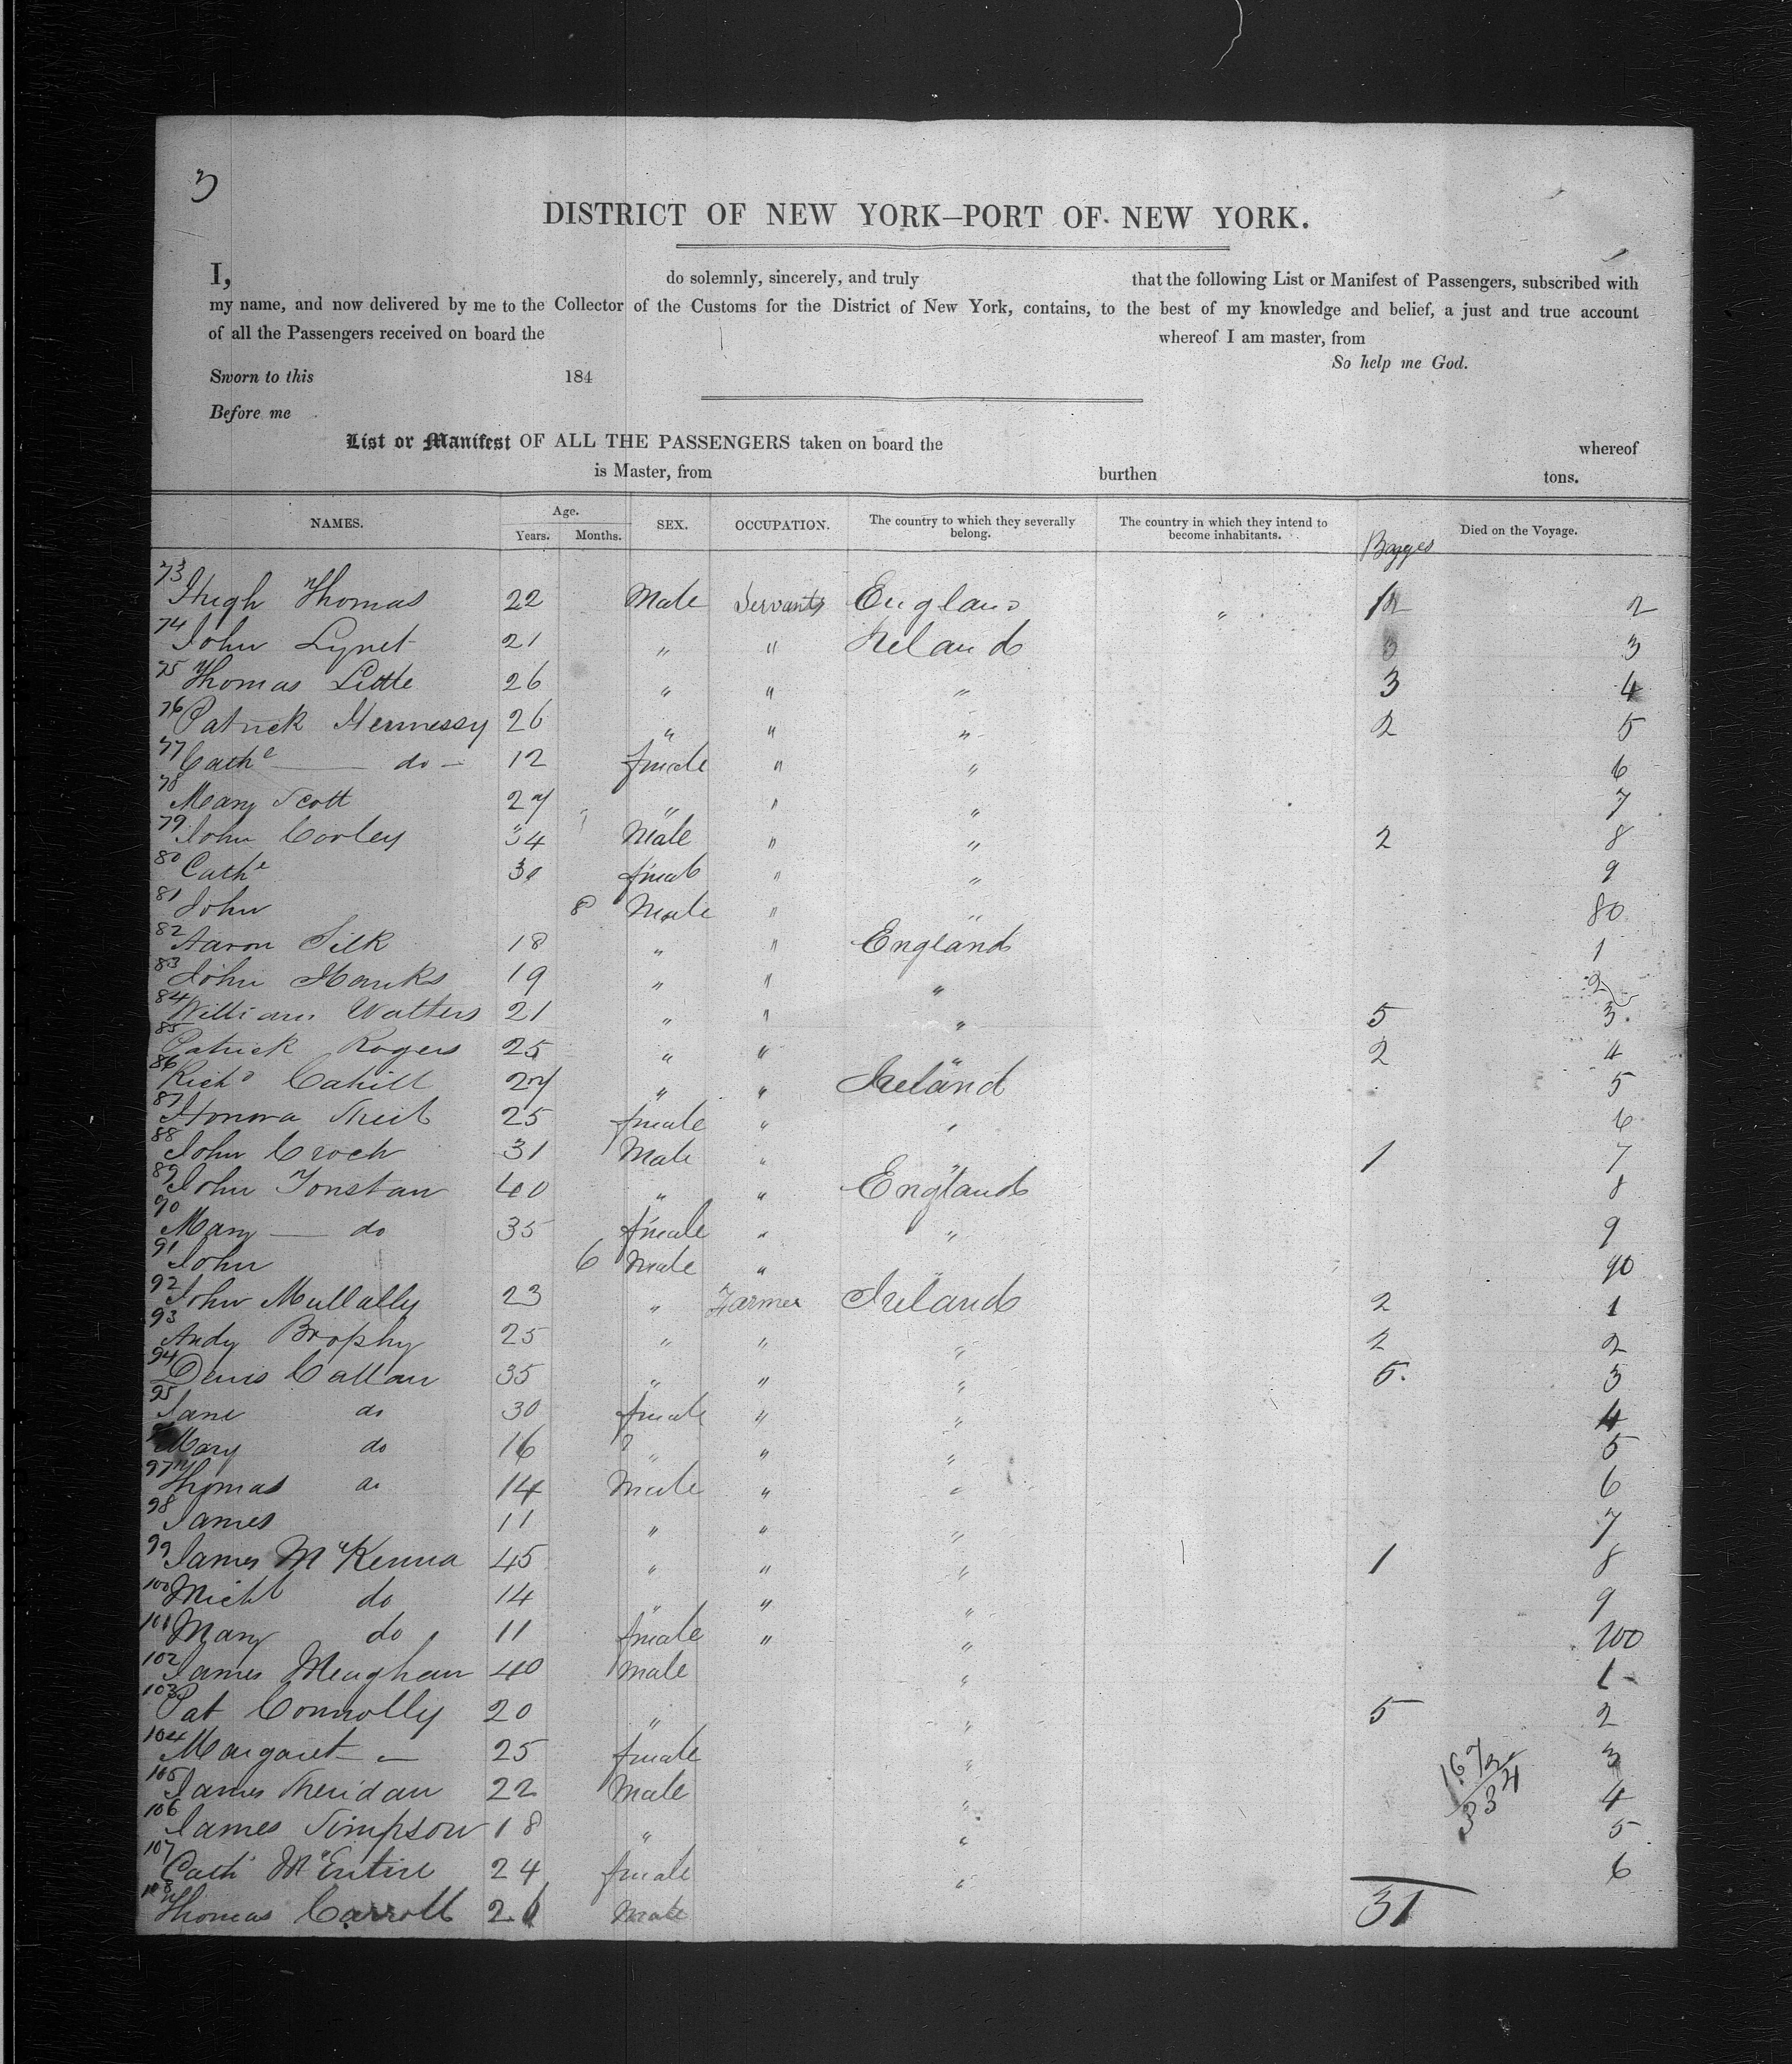 3
DISTRICT OF NEW YORK—PORT OF NEW YORK.
I, do solemnly, sincerely, and truly that the following List or Manifest of Passengers, subscribed with
my name, and now delivered by me to the Collector of the Customs for the District of New York, contains, to the best of my knowledge and belief, a just and true account
of all the Passengers received on board the whereof I am master, from
So help me God.
Sworn to this 184
Before me
List or Manifest OF ALL THE PASSENGERS taken on board the whereof
is Master, from burthen tons.
NAMES. Age. Years. Months. SEX. OCCUPATION. The country to which they severally belong. The country in which they intend to become inhabitants. Bagges Died on the Voyage.
73 Hugh Thomas 22 Male Servants England " 2
74 John Lynet 21 " " Ireland 3 3
75 Thomas Little 26 " " " 3 4
76 Patrick Hennessy 26 " " " 2 5
77 Cathe — do — 12 female " " 6
78 Mary Scott 27 " " " 7
79 John Corley 34 Male " " 2 8
80 Cathe 30 female " " 9
81 John 8 Male " " 80
82 Aaron Silk 18 " " England 1
83 John Hanks 19 " " " 2
84 William Walters 21 " " " 5 3
85 Patrick Rogers 25 " " " 2 4
86 Richd Cahill 27 " " Ireland 5
87 Honora 25 female " " 6
88 John Croch 31 Male " " 1 7
89 John Jonstan 40 " " England 8
90 Mary — do 35 female " " 9
91 John 6 Male " " 90
92 John Mullally 23 " Farmer Ireland 2 1
93 Andy Brophy 25 " " " 2 2
94 Denis Callan 35 " " " 5 3
95 Jane do 30 female " " 4
Mary do 16 " " " 5
97 Thomas do 14 Male " " 6
98 James 11 " " " 7
99 James McKenna 45 " " " 1 8
100 Michl do 14 " " " 9
101 Mary do 11 female " " 100
102 James Meaghan 40 male " 1
103 Pat Connolly 20 " " 5 2
104 Margaret — 25 female " 3
105 James Sheridan 22 Male " 4
106 James Simpson 18 " " 5
107 Cath McEntire 24 female " 6
108 Thomas Carroll 26 Male
167/2
334
31